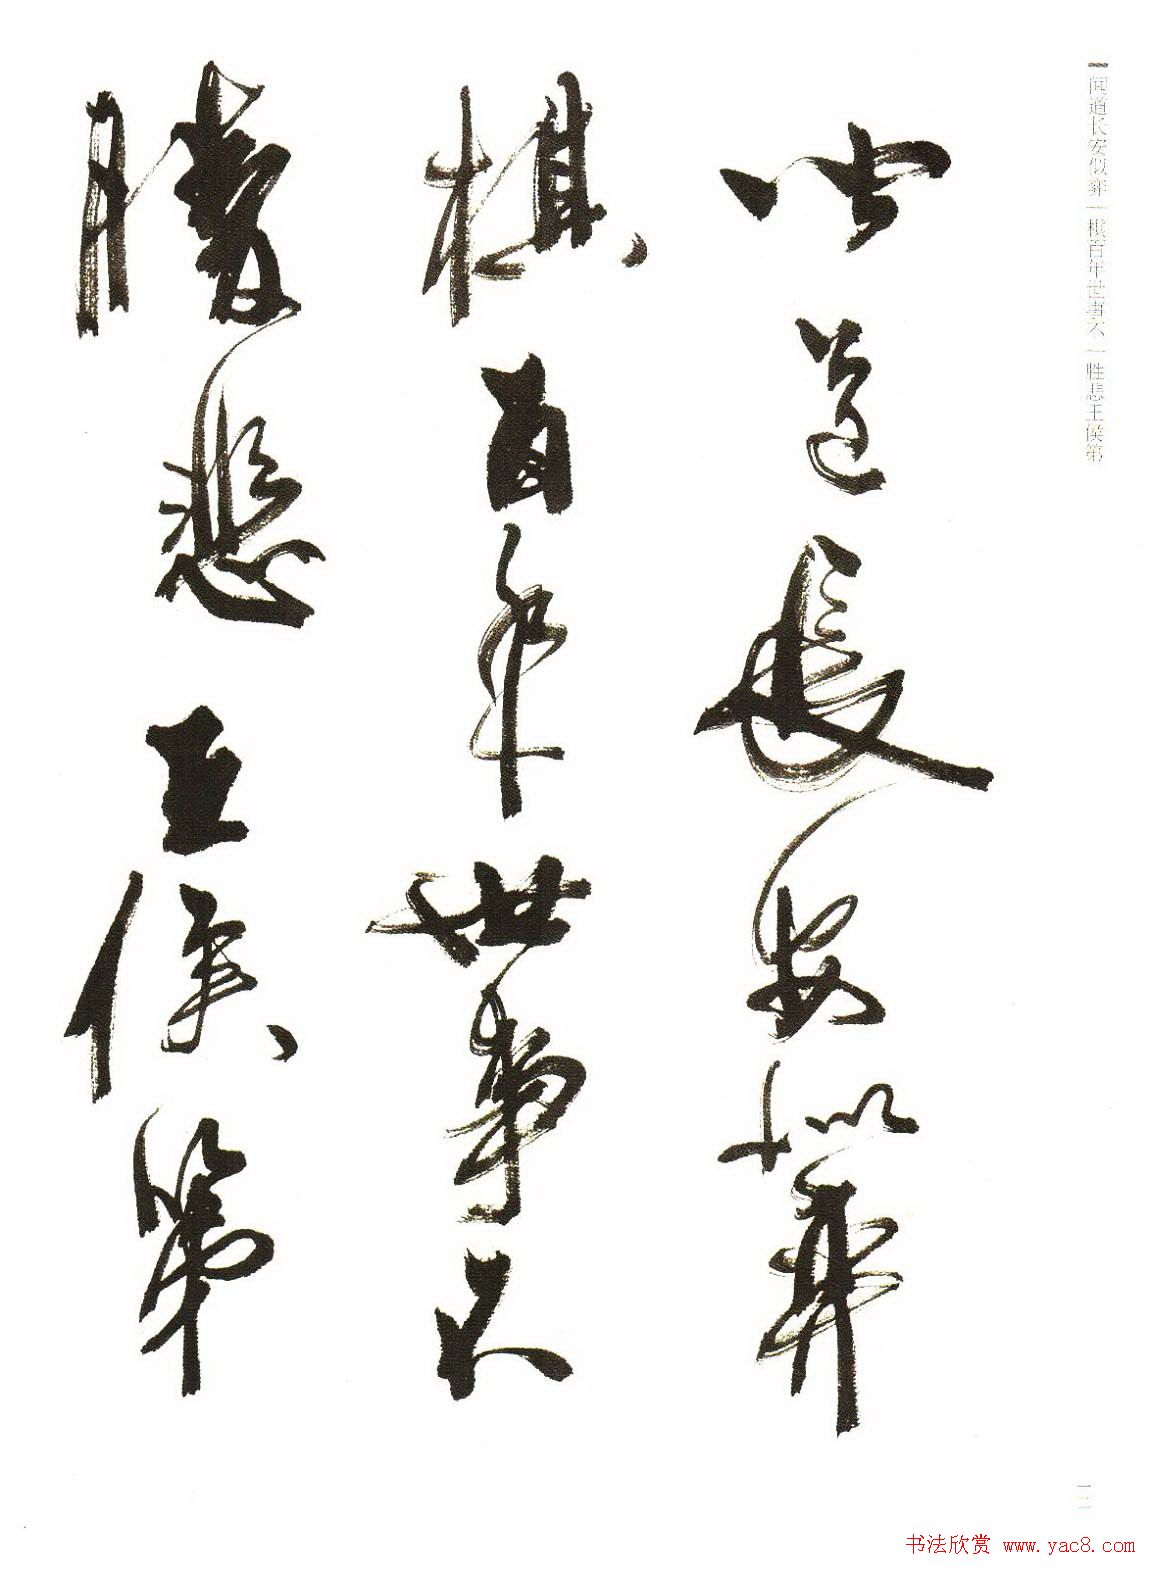 闻道长安似弈
棋百年世事不
勝悲王侯第
闻道长安似弈｜棋百年世事不｜胜悲王侯第
一二
书法欣赏 www.yac8.com